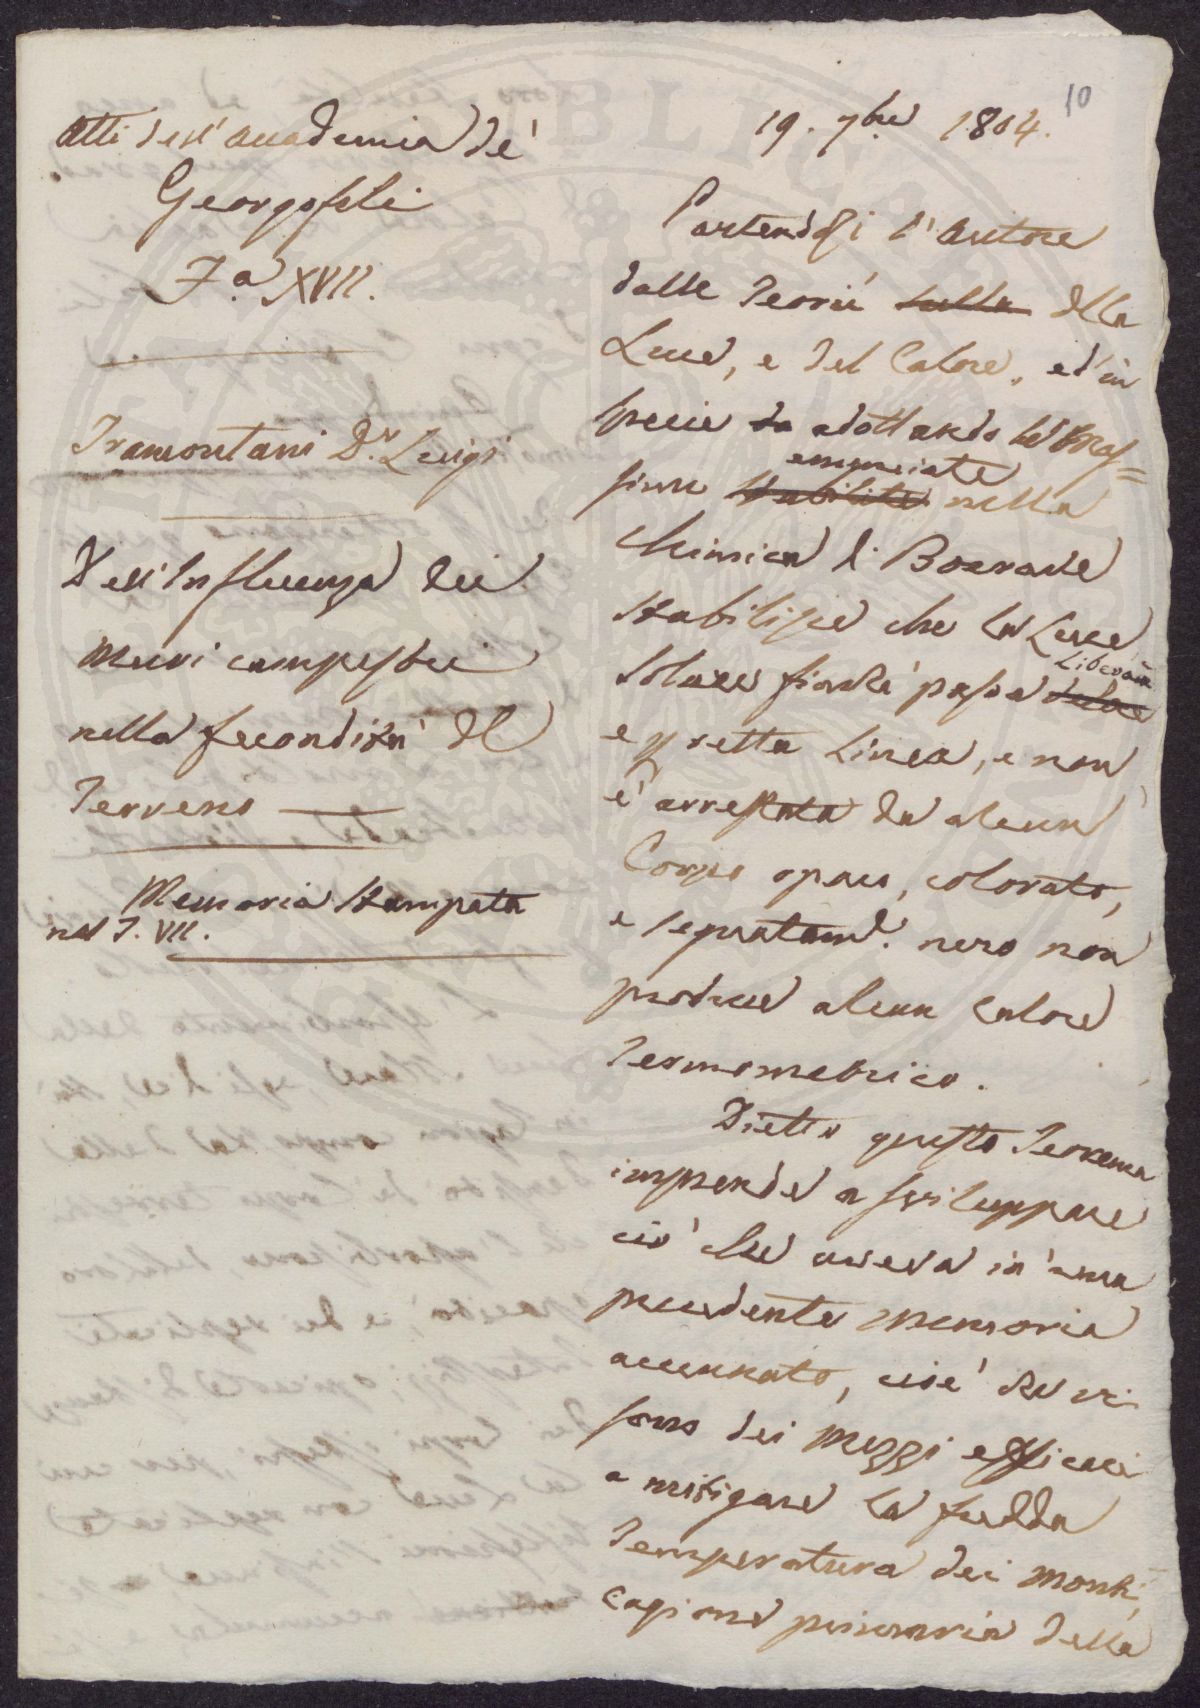 10
Atti dell'Accademia de'
Georgofili
T.a XVII.
Tramontani D.r Luigi
Dell'Influenza dei
Muri campestri
nella fecondità del
Terreno
Memoria stampata
nel T. VII.
19. 7bre 1804.
Partendosi l'Autore
dalle Teorie sulla della
Luce, e del Calore, ed in
specie da adottando le Mas=
sime stabilite enunciate nella
Chimica di
stabilisce che la Luce
Solare finché passa libera
e per retta linea, e non
è arrestata da alcun
Corpo opaco, colorato,
e segnatam.e nero non
produce alcun calore
Termometrico.
Dietro questo Teorema
imprende a sviluppare
ciò che aveva in una
precedente memoria
accennato, cioè che vi
sono dei mezzi efficaci
a mitigare la fredda
Temperatura dei monti,
cagione primaria della